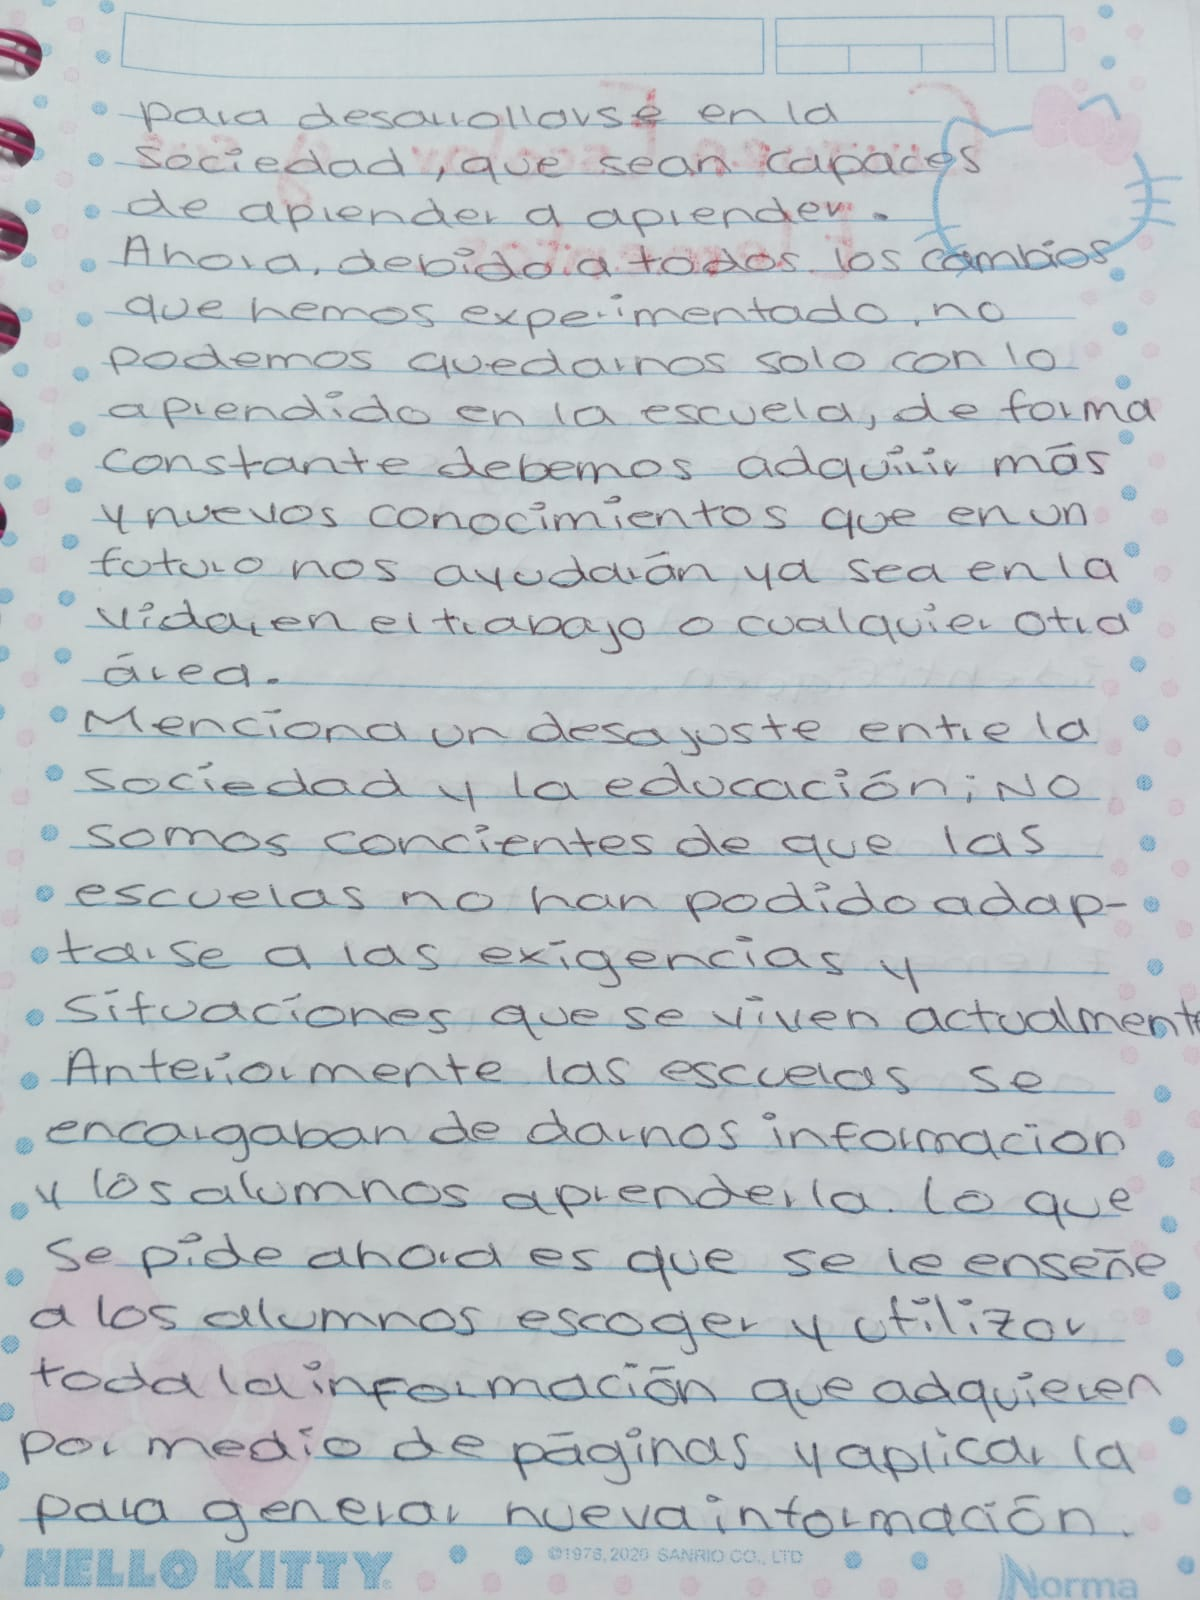 para desarrollarse en la
sociedad, que sean capaces
de aprender a aprender.
Ahora, debido a todos los cambios
que hemos experimentado, no
podemos quedarnos solo con lo
aprendido en la escuela, de forma
constante debemos adquirir más
y nuevos conocimientos que en un
futuro nos ayudarán ya sea en la
vida, en el trabajo o cualquier otra
área.
Menciona un desajuste entre la
sociedad y la educación; No
somos concientes de que las
escuelas no han podido adap-
tarse a las exigencias y
situaciones que se viven actualmente
Anteriormente las escuelas se
encargaban de darnos informacion
y los alumnos aprenderla. Lo que
se pide ahora es que se le enseñe
a los alumnos escoger y utilizar
toda la información que adquieren
por medio de páginas y aplicar la
para generar nueva información.
HELLO KITTY ©1976, 2020 SANRIO CO., LTD Norma